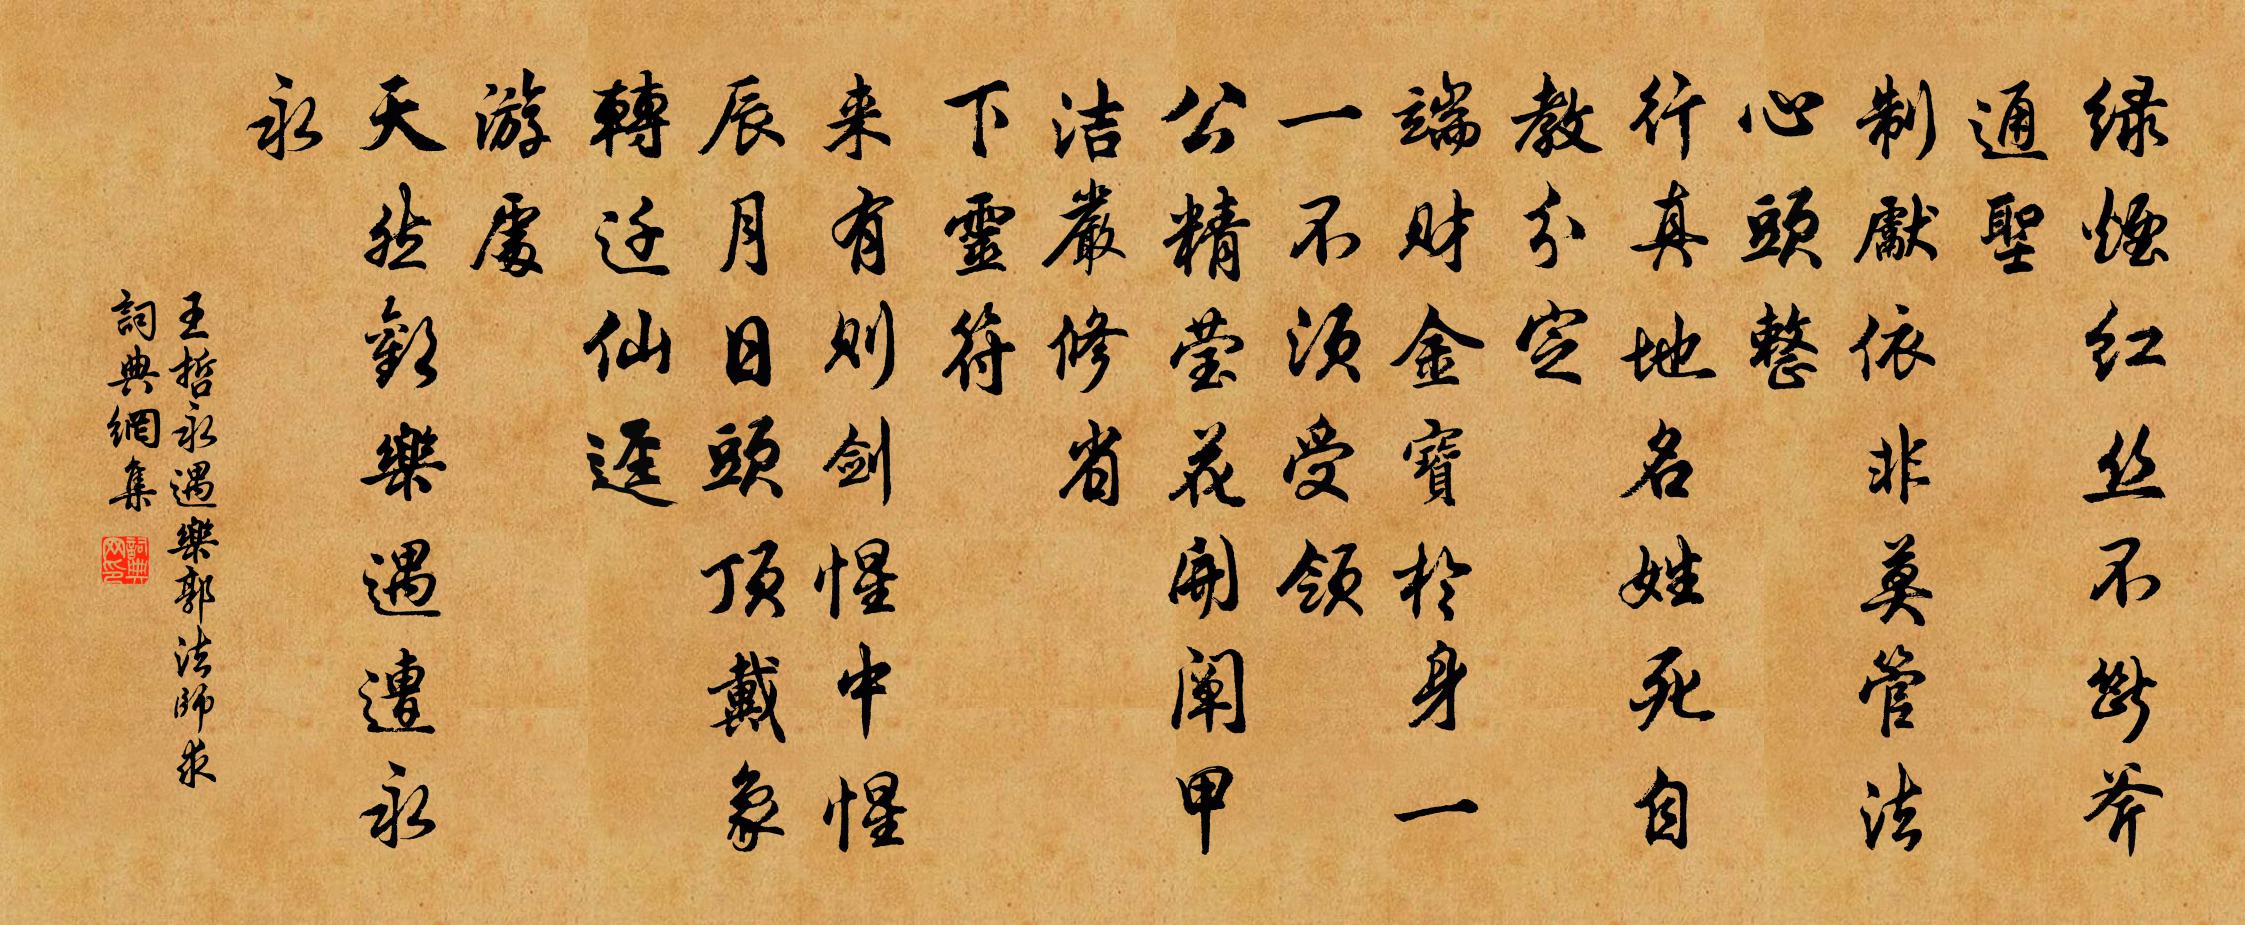 绿煙红丝不斷斧
通聖
制獻依非莫管法
心頭整
行真地名姓死自
教分定
端财金寶於身一
一不须受领
公精莹花開闡甲
洁嚴修省
下靈符
来有则剑惺中惺
辰月日頭顶戴象
轉迁仙逕
游處
天然歡樂遇遭永
永
王哲永遇樂郭法師求
詞典網集
詞典网印